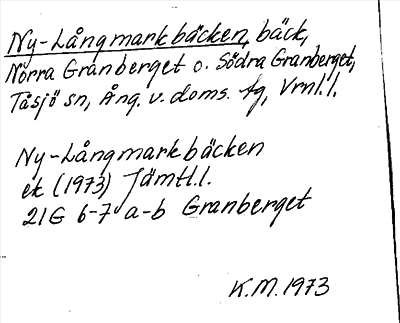 Ny-Långmarkbäcken, bäck,
Norra Granberget o. Södra Granberget,
Tåsjö sn, Ång. v. doms. tg, Vrnl.l.
Ny-Långmarkbäcken
ek (1973) Jämtl.l.
21G 6-7 a-b Granberget
K.M. 1973